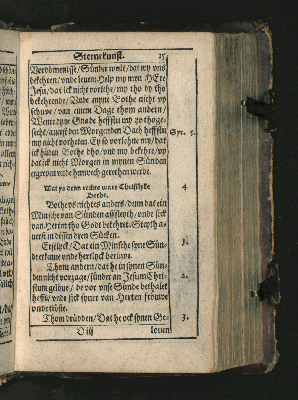 Sternekunst. 25
Verdömenisse/ Sünder wult/ dat wy vns
bekehren/ vnde leuen: Help my myn HEre
Jesu/ dat ick nicht vortehe/ my tho dy tho
bekehrende/ Unde myne Bothe nicht vp
schuve/ van einem Dage thom andern/
Wente dyne Gnade heffstu my yo thoge-
secht/ auerst den Morgenden Dach heffstu Syr. 5.
my nicht vorheten. Ey so vorlehne my/ dat
ick hüden Bothe dho/ vnd my bekehre/ vp
dat ick nicht Morgen in mynen Sünden
ergrepen vnde henwech gereten werde.
Wat ys denn rechte ware Christlyke 4
Bothe.
Bothe ys nichts anders/ denn dat ein
Minsche van Sünden affsteyth/ vnde sick
van Herten tho Godt bekehret. Steyth a-
uerst in dissen dren Stücken.
Erstlyck/ Dat ein Minsche syne Sün- 1.
de erkenne vnde hertlyck beruwe.
Thom andern/ dat he in synen Sün- 2.
den nicht vorzage/ sünder an Jesum Chri-
stum gelöue/ de vor vnse Sünde bethalet
hefft/ vnde sick syner van Herten fröuwe
vnde tröste.
Thom drüdden/ Dat he ock synen Ge- 3.
D iij leuen